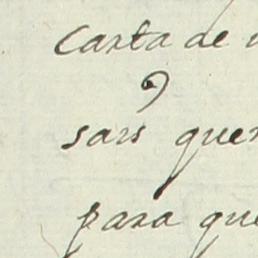 Carta de
sais que
para que